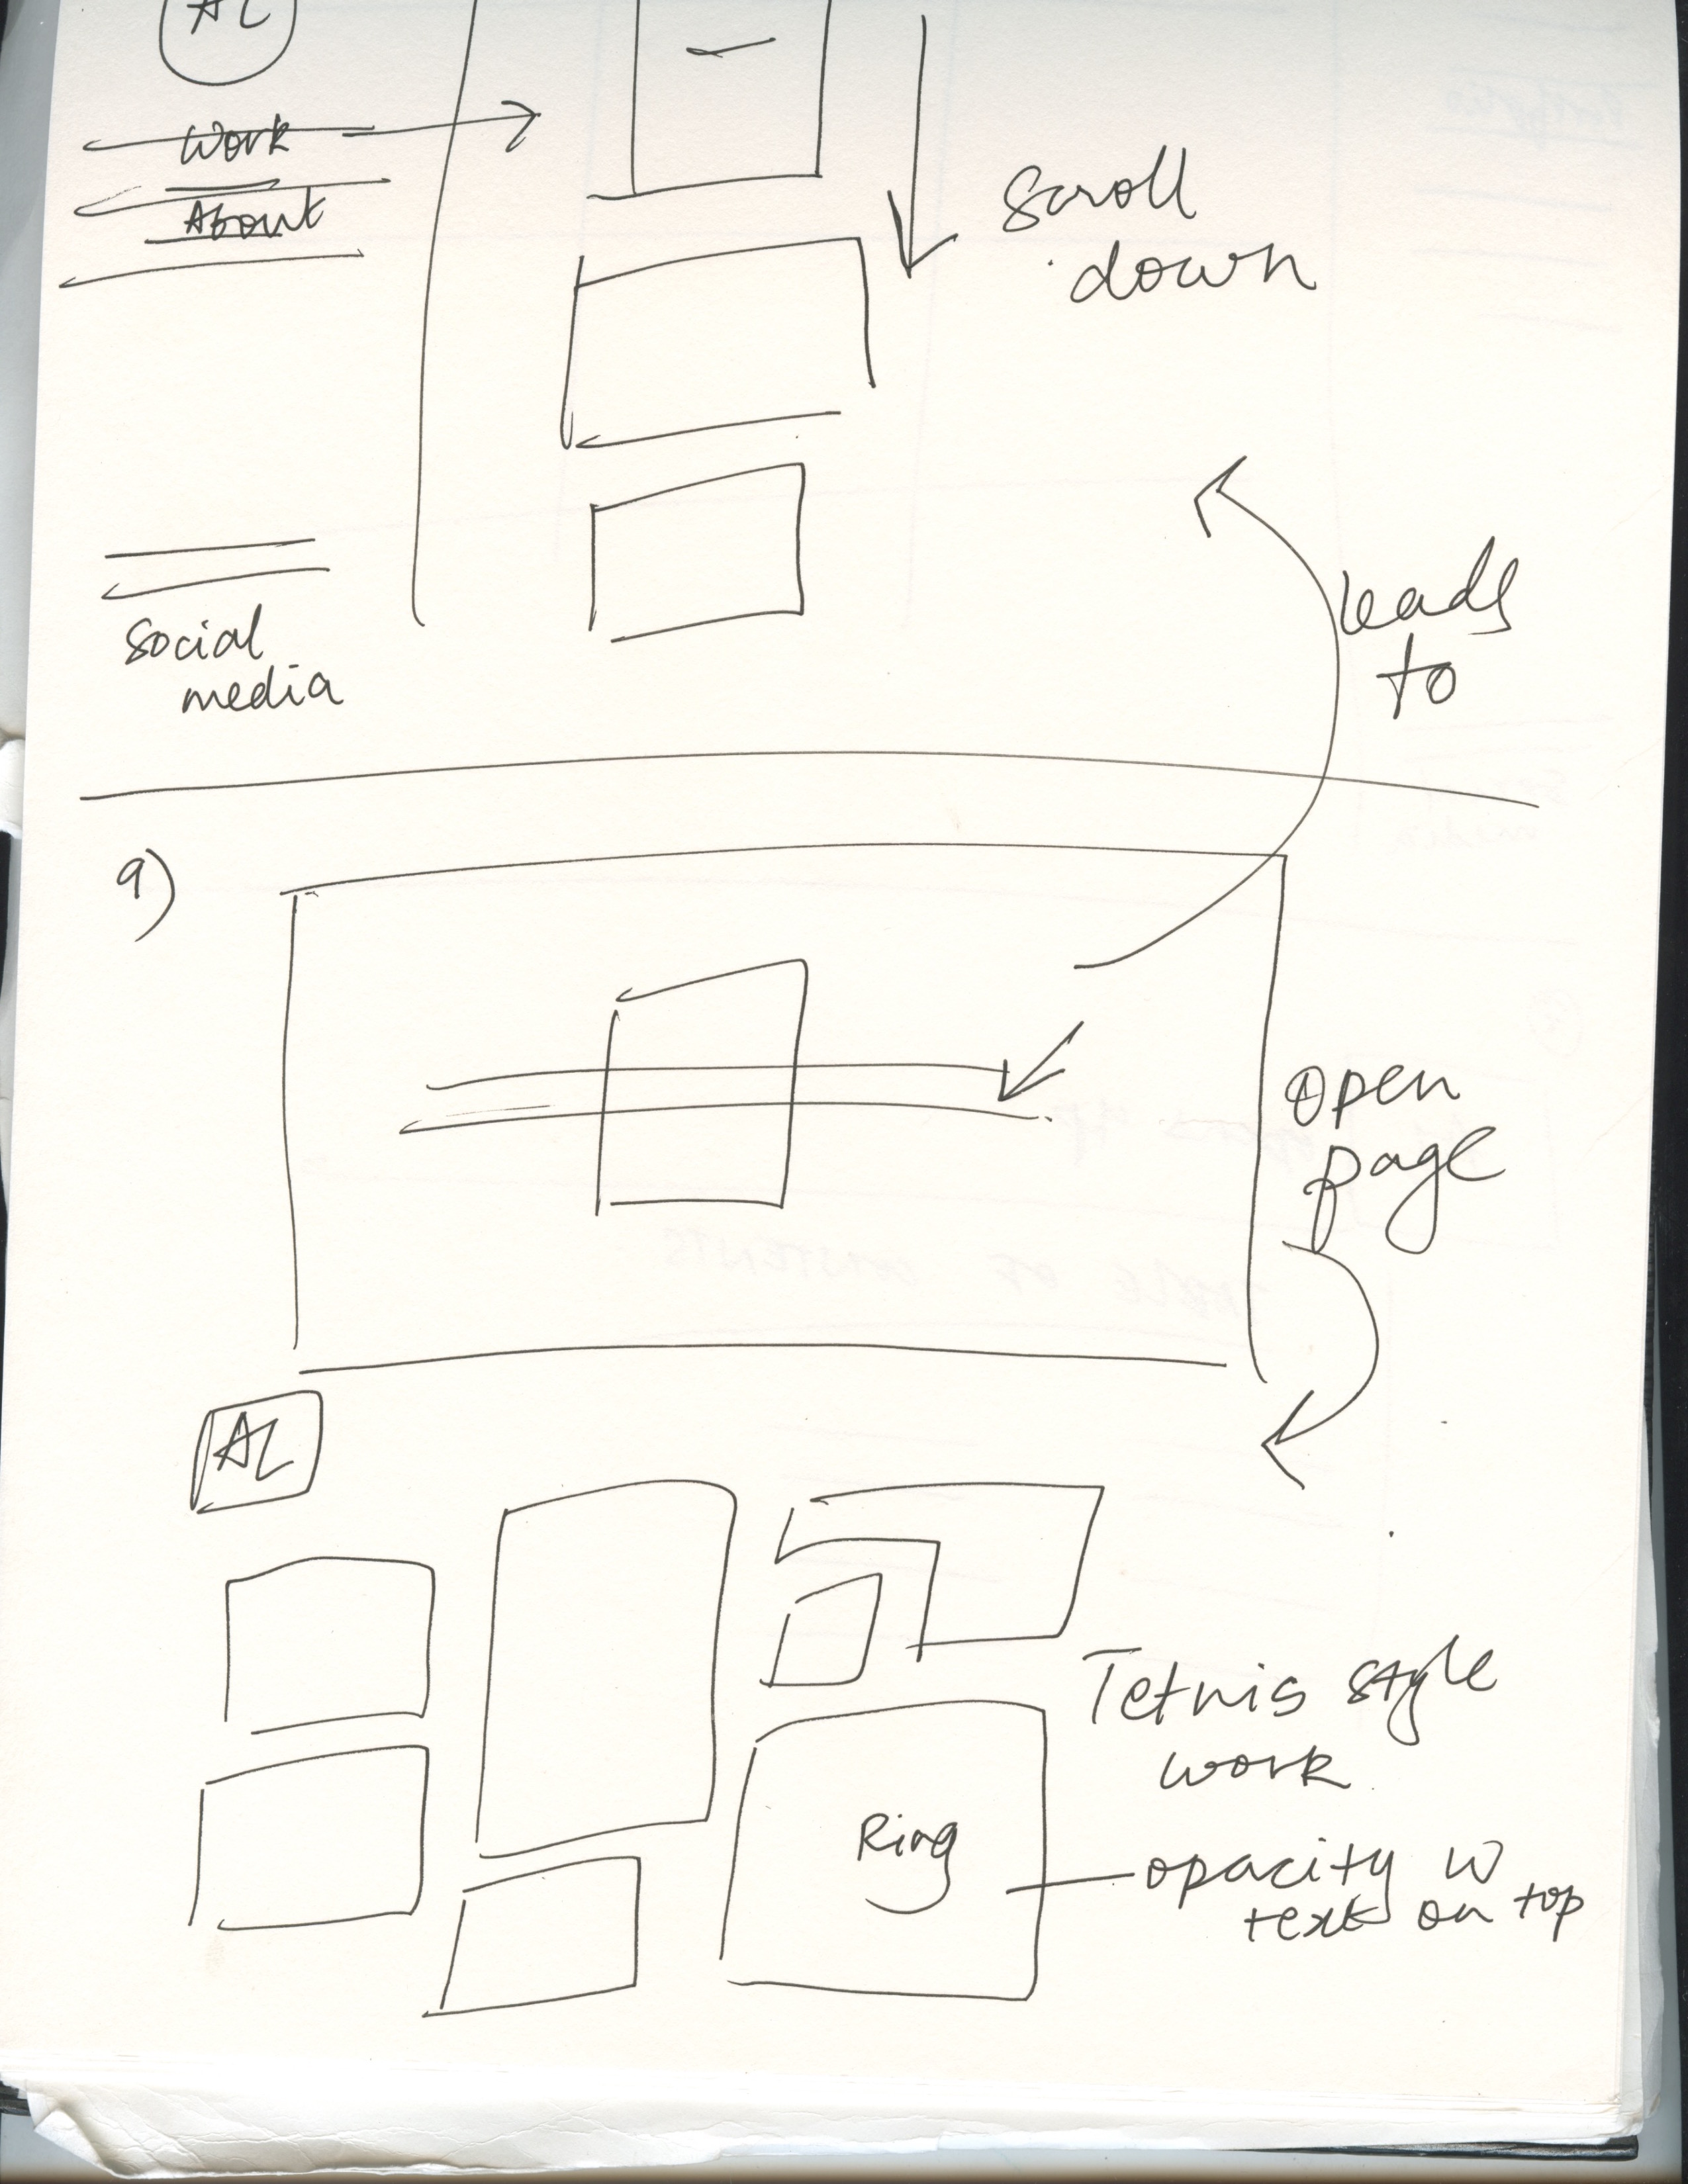 AL
Work
About
scroll
down
social
media
leads
to
9)
open
page
AL
Tetris style
work
Ring
opacity w
text on top